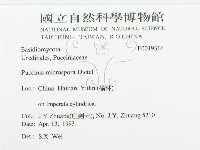 國立自然科學博物館
NATIONAL MUSEUM OF NATURAL SCIENCE
TAICHUNG, TAIWAN, R.O.CHINA
Basidiomycota F0019314
Uredinales, Pucciniaceae
Puccinia microspora Dietel
Loc: China. Hainan, Yulin (榆林)
on Imperata cylindrica.
Col: J.Y. Zhuang (莊劍雲), No. J.Y. Zhuang 5210
Date: Apr. 13, 1993
Det: S.X. Wei